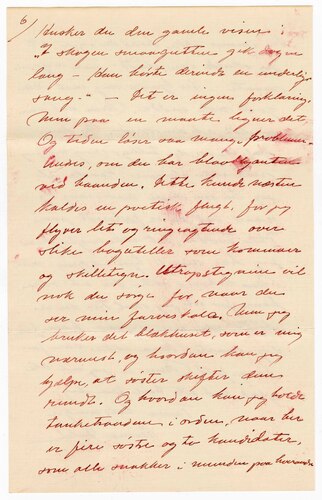 6)
Husker du den gamle visen:
"I skogen smaagutten gik dagen
lang – Han hørte derinde en underlig
sang –" – Det er ingen forklaring.
Men paa en maate ligner det.
Og tiden løser saa mange problemer
, om du har
ved haanden. Dette kunde næsten
kaldes en poetisk flugt, for jeg
flyver let og ringeagtende over
slike bagateller som kommaer
og skilletegn. Utropstegnene vil
nok du sørge for, naar du
ser min farveskala. Men jeg
bruker det blækhuset, som er mig
nærmest, og hvordan kan jeg
hjelpe, at søster skifter dem
rundt. Og hvordan kan jeg holde
tanketraaden i orden, naar her
er fire søstre og to kandidater,
som alle snakker i munden paa hverandre